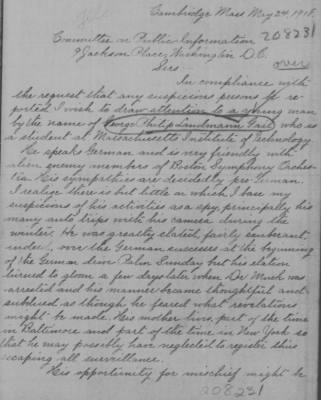 Cambridge Mass May 24, 1918.
208231
Committee on Public Information
9 Jackson Place, Washington D.C.
over
Sirs
In compliance with
the request that any suspicious persons be re-
ported I wish to draw attention to a young man
by the name of George Philip Landmann who is
a student at Massachusetts Institute of Technology
He speaks German and is very friendly with
alien enemy members of Boston Symphony Orches-
tra His sympathies are decidedly pro-German.
I realize there is but little on which I base my
suspicions of his activities as a spy, principally his
many auto trips with his camera during the
winter. He was greatly elated, fairly exuberant,
indeed, over the German successes at the beginning
of the German drive Palm Sunday but his elation
turned to gloom a few days later when Dr Muck was
arrested and his manner became thoughtful and
subdued as though he feared what revelations
might be made. His mother lives part of the time
in Baltimore and part of the time in New York so
that he may possibly have neglected to register thus
escaping all surveillance.
His opportunity for mischief might be
208231